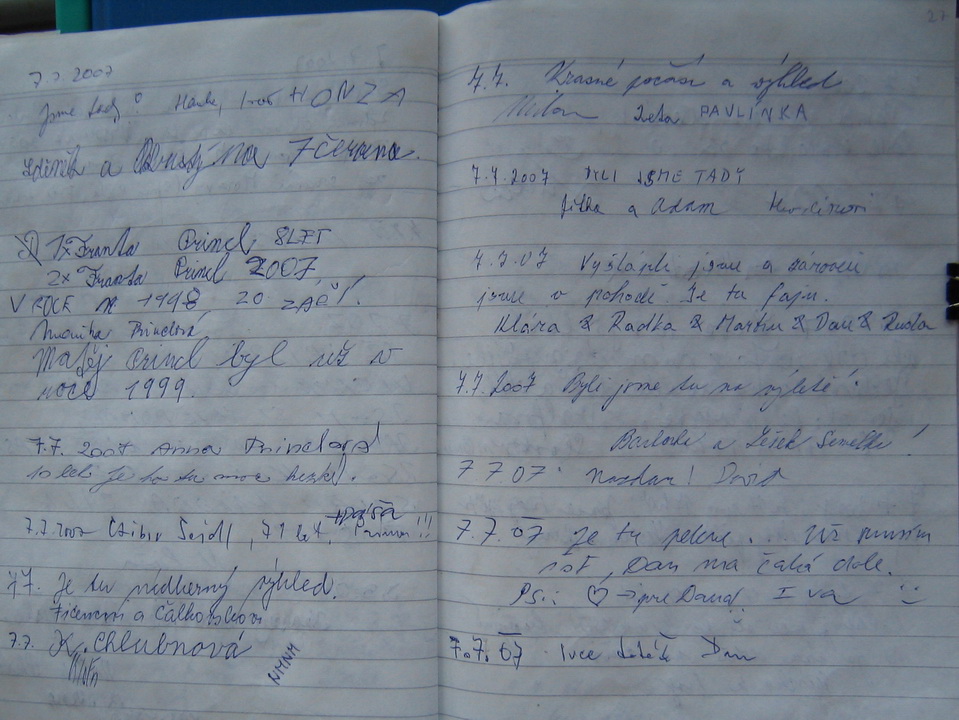 7.7.2007
Jsme tady! HONZA
a na 7 června.
1x Franta Princl 8 LET
2x Franta Princl 2007
V ROCE 1998 20 ZÁŘÍ.
Monika Princlová
Matěj Princl byl už v
roce 1999.
7.7. 2007 Anna Princlová
10 let je to tu moc hezké.
7.7.2007 Ctibor Šejdl, 71 let, !!!
7.7. Je tu nádherný výhled.
a
7.7. K. Chlubnová
NHNH
21
7.7. Krásné počasí a výhled
Milan Iveta PAVLÍNKA
7.7.2007 BYLI JSME TADY
Jitka a Adam
7.7.07 Vyšlápli jsme a zároveň
jsme v pohodě. Je to fajn.
Klára & Radka & Martin & Dan & Ruda
7.7.2007 Byli jsme tu na výletě!
a !
7 7 07 Nazdar! David
7.7.07 Je tu pekne ... Už musím
ísť, Dan ma čaká dole.
Ps.: ♡ → pre Dana!! Iva
7.7.07 Ivce Dan